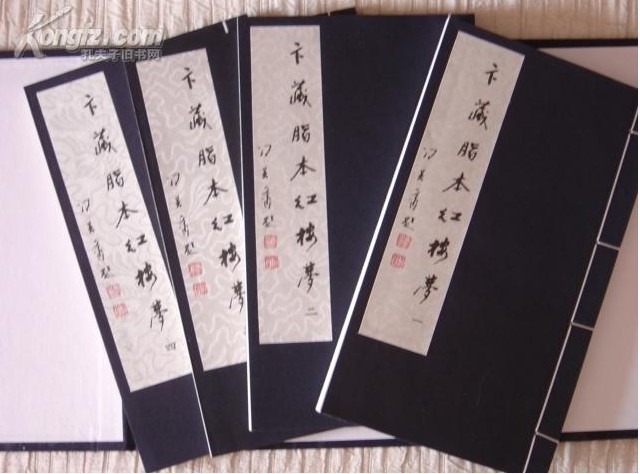 Kongfz.com
孔夫子旧书网
卞藏脂本红楼梦 四
冯其庸题
卞藏脂本红楼梦
冯其庸题
卞藏脂本红楼梦 二
冯其庸题
卞藏脂本红楼梦 一
冯其庸题